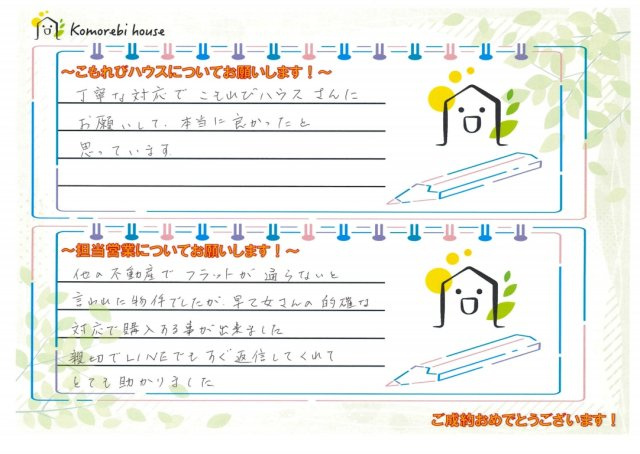 Komorebi house
～こもれびハウスについてお願いします！～
丁寧な対応で こもれびハウス さんに
お願いして、本当に良かったと
思っています
～担当営業についてお願いします！～
他の不動産で フラットが 通らないと
言われた物件でしたが、早乙女さんの 的確な
対応で購入する事が出来ました
親切でLINEでもすぐ返信してくれて
とても助かりました
ご成約おめでとうございます！